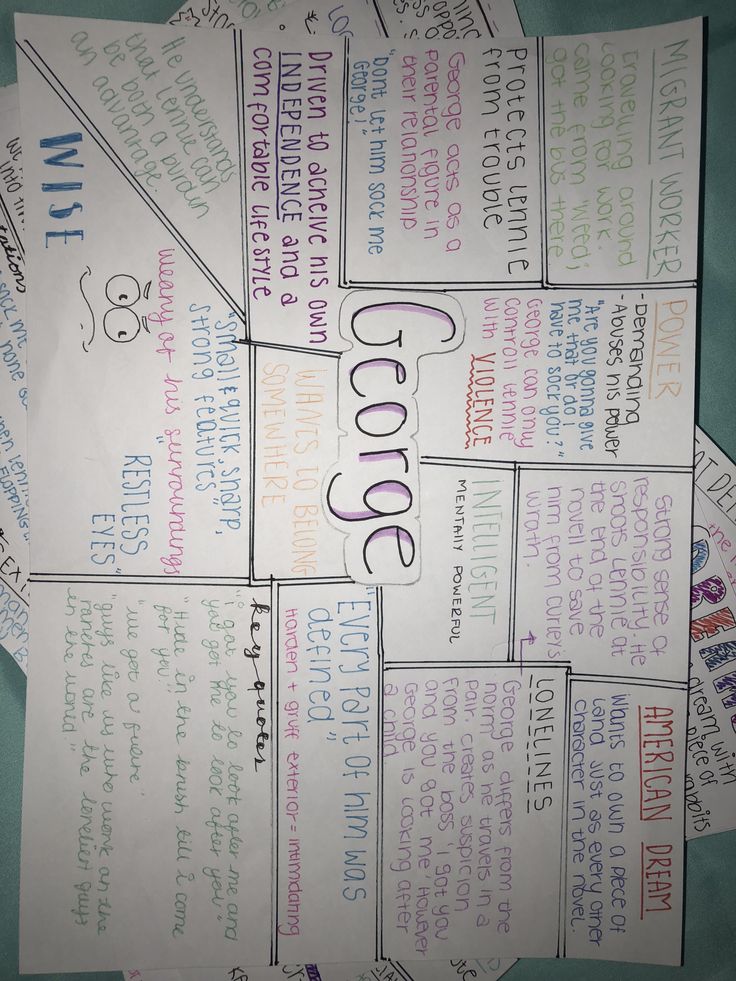 MIGRANT WORKER
travelling around
looking for work.
came from 'Weed';
got the bus there
Protects Lennie
from trouble
George acts as a
Parental figure in
their relationship
"Dont let him sock me
George!"
Driven to acheive his own
INDEPENDENCE and a
comfortable lifestyle
He understands
that Lennie can
be both a burden
an advantage.
WISE
POWER
- Demanding
- Abuses his power
"Are you gonna give
me that or do I
have to sock you?"
George can only
controll Lennie
with VIOLENCE
George
WANTS TO BELONG
SOMEWHERE
"Small & quick, sharp,
strong features"
weary of his surroundings
"RESTLESS
EYES"
Strong sense of
responsibility. He
shoots Lennie at
the end of the
novell to save
him from Curley's
wrath.
INTELLIGENT
MENTALLY POWERFUL
AMERICAN DREAM
Wants to own a piece of
land just as every other
character in the novel.
LONELINES
George differs from the
norm as he travels in a
pair, creates suspicion
from the boss 'I got you
and you got me'. However
George is looking after
a child
"Every part of him was
defined"
harden + gruff exterior = intimdating
key quotes
"i got you to look after me and
you got me to look after you"
"Hide in the brush till i come
for you".
"we got a future"
"guys like us who work on the
ranches are the loneliest guys
in the world."
DREAM
dream with
piece of
rabbits